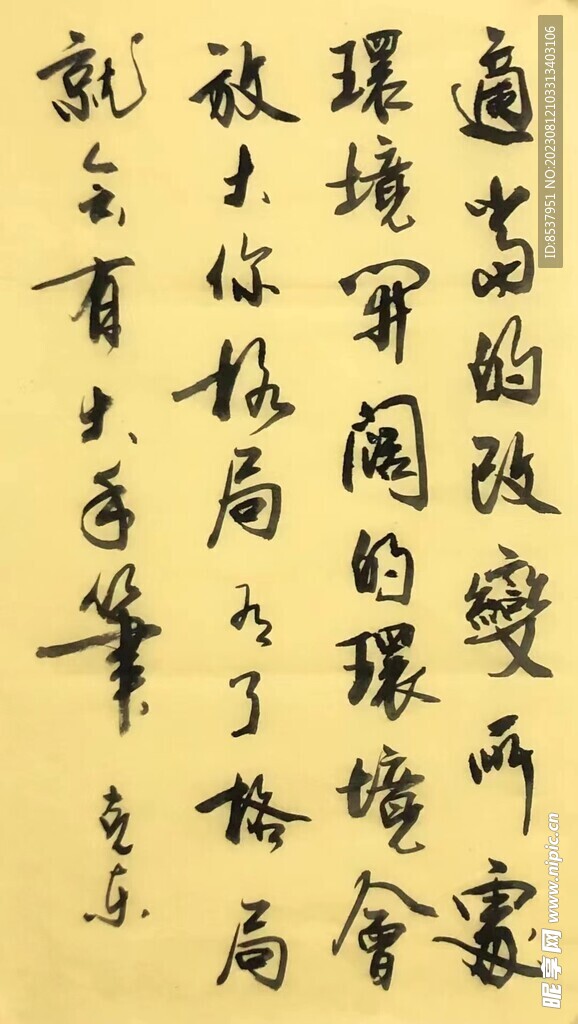 適當的改變所處
環境開闊的環境會
放大你格局有了格局
就会有大手筆
克东
ID:8537951 NO:20230812103313403106
昵享网 www.nipic.cn